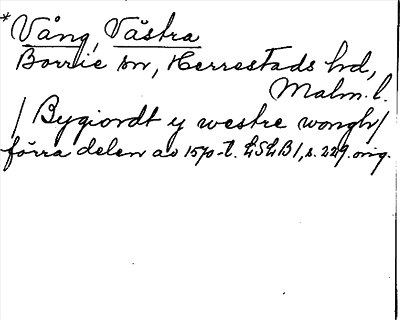 * Vång, Västra
Borrie sn, Herrestads hd,
Malm. l.
/ Bygiordt y westre wongh/
förra delen av 1570-t. LSLB1, s. 229. orig.